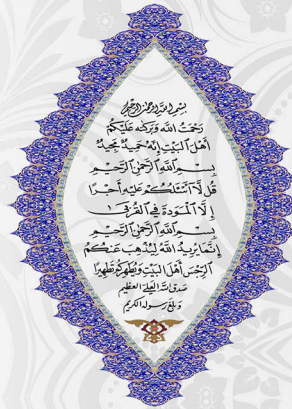 بسم الله الرحمن الرحيم
رَحْمَتُ اللَّهِ وَبَرَكَاتُهُ عَلَيْكُمْ
أَهْلَ الْبَيْتِ إِنَّهُ حَمِيدٌ مَجِيدٌ
بِسْمِ اللَّهِ الرَّحْمَنِ الرَّحِيمِ
قُل لَّا أَسْأَلُكُمْ عَلَيْهِ أَجْرًا
إِلَّا الْمَوَدَّةَ فِي الْقُرْبَى
بِسْمِ اللَّهِ الرَّحْمَنِ الرَّحِيمِ
إِنَّمَا يُرِيدُ اللَّهُ لِيُذْهِبَ عَنكُمُ
الرِّجْسَ أَهْلَ الْبَيْتِ وَيُطَهِّرَكُمْ تَطْهِيرًا
صدق الله العلي العظيم
وبلغ رسوله الكريم